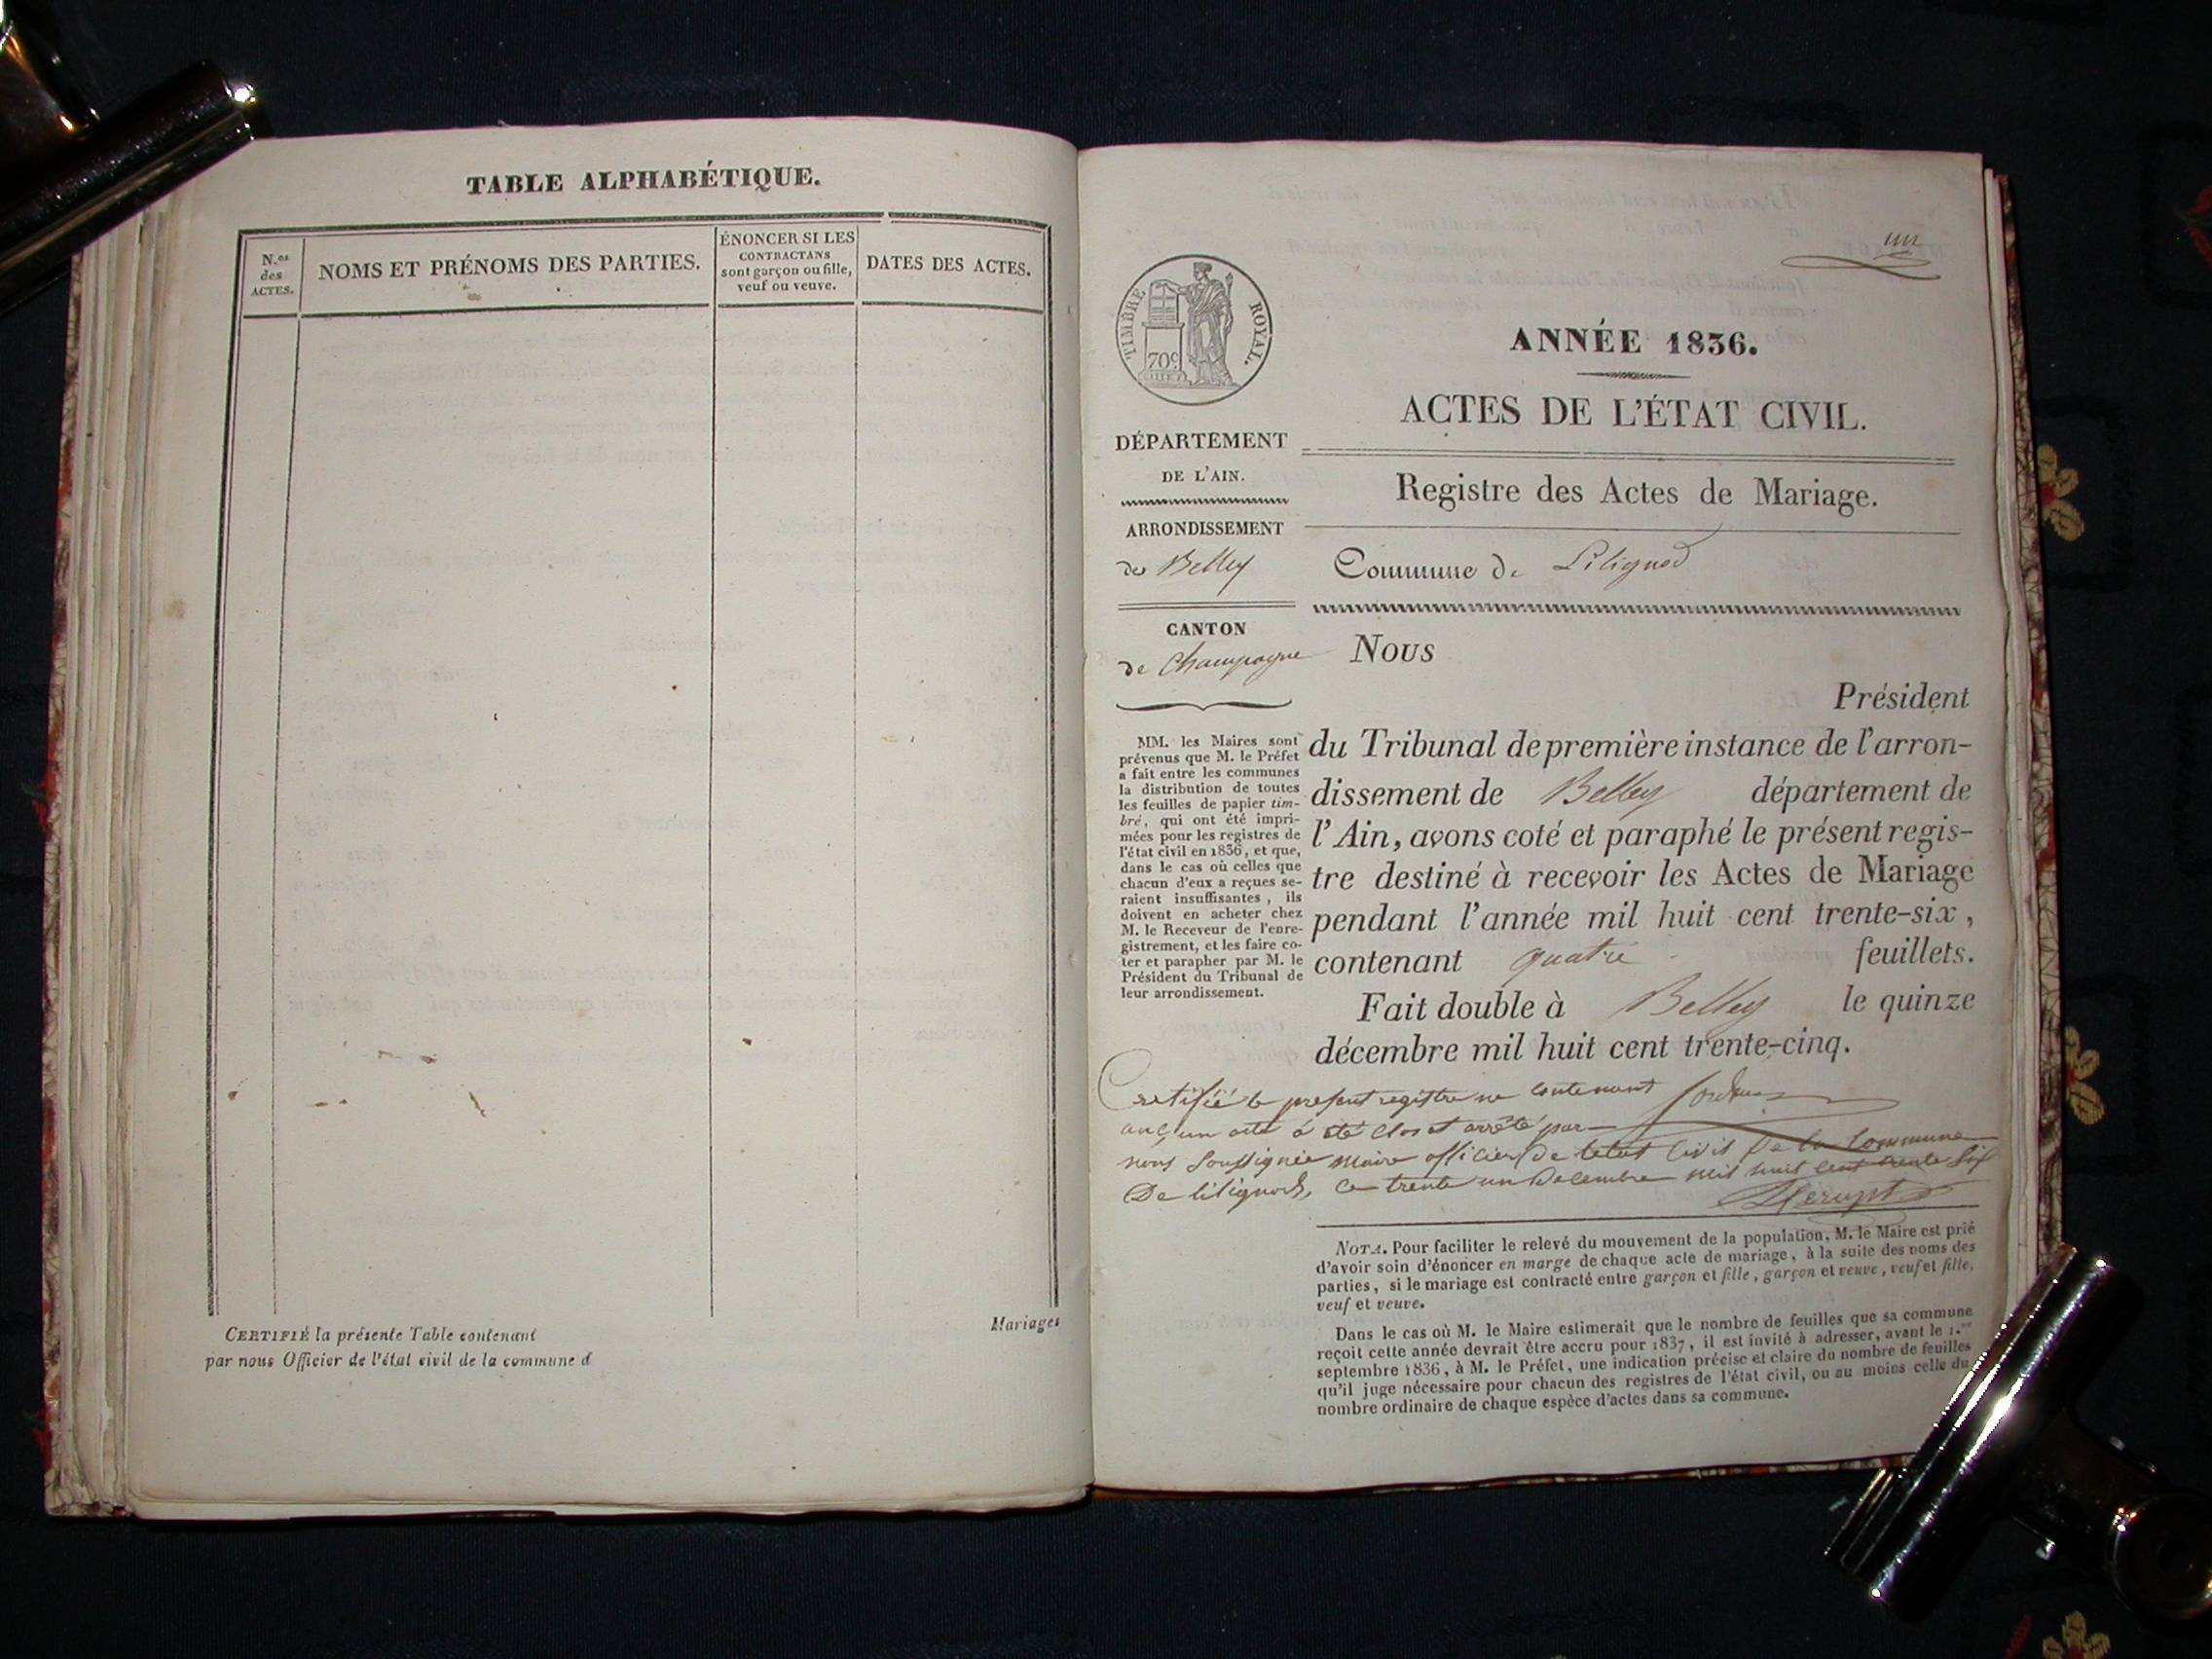 TABLE ALPHABÉTIQUE.
N.os des ACTES.
NOMS ET PRÉNOMS DES PARTIES.
ÉNONCER SI LES
CONTRACTANS
sont garçon ou fille,
veuf ou veuve.
DATES DES ACTES.
Mariages
CERTIFIÉ la présente Table contenant
par nous Officier de l'état civil de la commune d
un
TIMBRE ROYAL.
70c
ANNÉE 1836.
ACTES DE L'ÉTAT CIVIL.
DÉPARTEMENT
DE L'AIN.
Registre des Actes de Mariage.
ARRONDISSEMENT
de Belley
Commune de Lilignod
CANTON
de Champagne
MM. les Maires sont
prévenus que M. le Préfet
a fait entre les communes
la distribution de toutes
les feuilles de papier tim-
bré, qui ont été impri-
mées pour les registres de
l'état civil en 1836, et que,
dans le cas où celles que
chacun d'eux a reçues se-
raient insuffisantes, ils
doivent en acheter chez
M. le Receveur de l'enre-
gistrement, et les faire co-
ter et parapher par M. le
Président du Tribunal de
leur arrondissement.
Nous
Président
du Tribunal de première instance de l'arron-
dissement de Belley département de
l'Ain, avons coté et paraphé le présent regis-
tre destiné à recevoir les Actes de Mariage
pendant l'année mil huit cent trente-six,
contenant quatre feuillets.
Fait double à Belley le quinze
décembre mil huit cent trente-cinq.
Certifié le present registre ne contenant
aucun acte a été clos et arrêté par
nous soussignée maire officier de letat Civil De la Commune
De lilignod, ce trente un Decembre mil huit cent trente Six
NOTA. Pour faciliter le relevé du mouvement de la population, M. le Maire est prié
d'avoir soin d'énoncer en marge de chaque acte de mariage, à la suite des noms des
parties, si le mariage est contracté entre garçon et fille, garçon et veuve, veuf et fille,
veuf et veuve.
Dans le cas où M. le Maire estimerait que le nombre de feuilles que sa commune
reçoit cette année devrait être accru pour 1837, il est invité à adresser, avant le 1.er
septembre 1836, à M. le Préfet, une indication précise et claire du nombre de feuilles
qu'il juge nécessaire pour chacun des registres de l'état civil, ou au moins celle du
nombre ordinaire de chaque espèce d'actes dans sa commune.